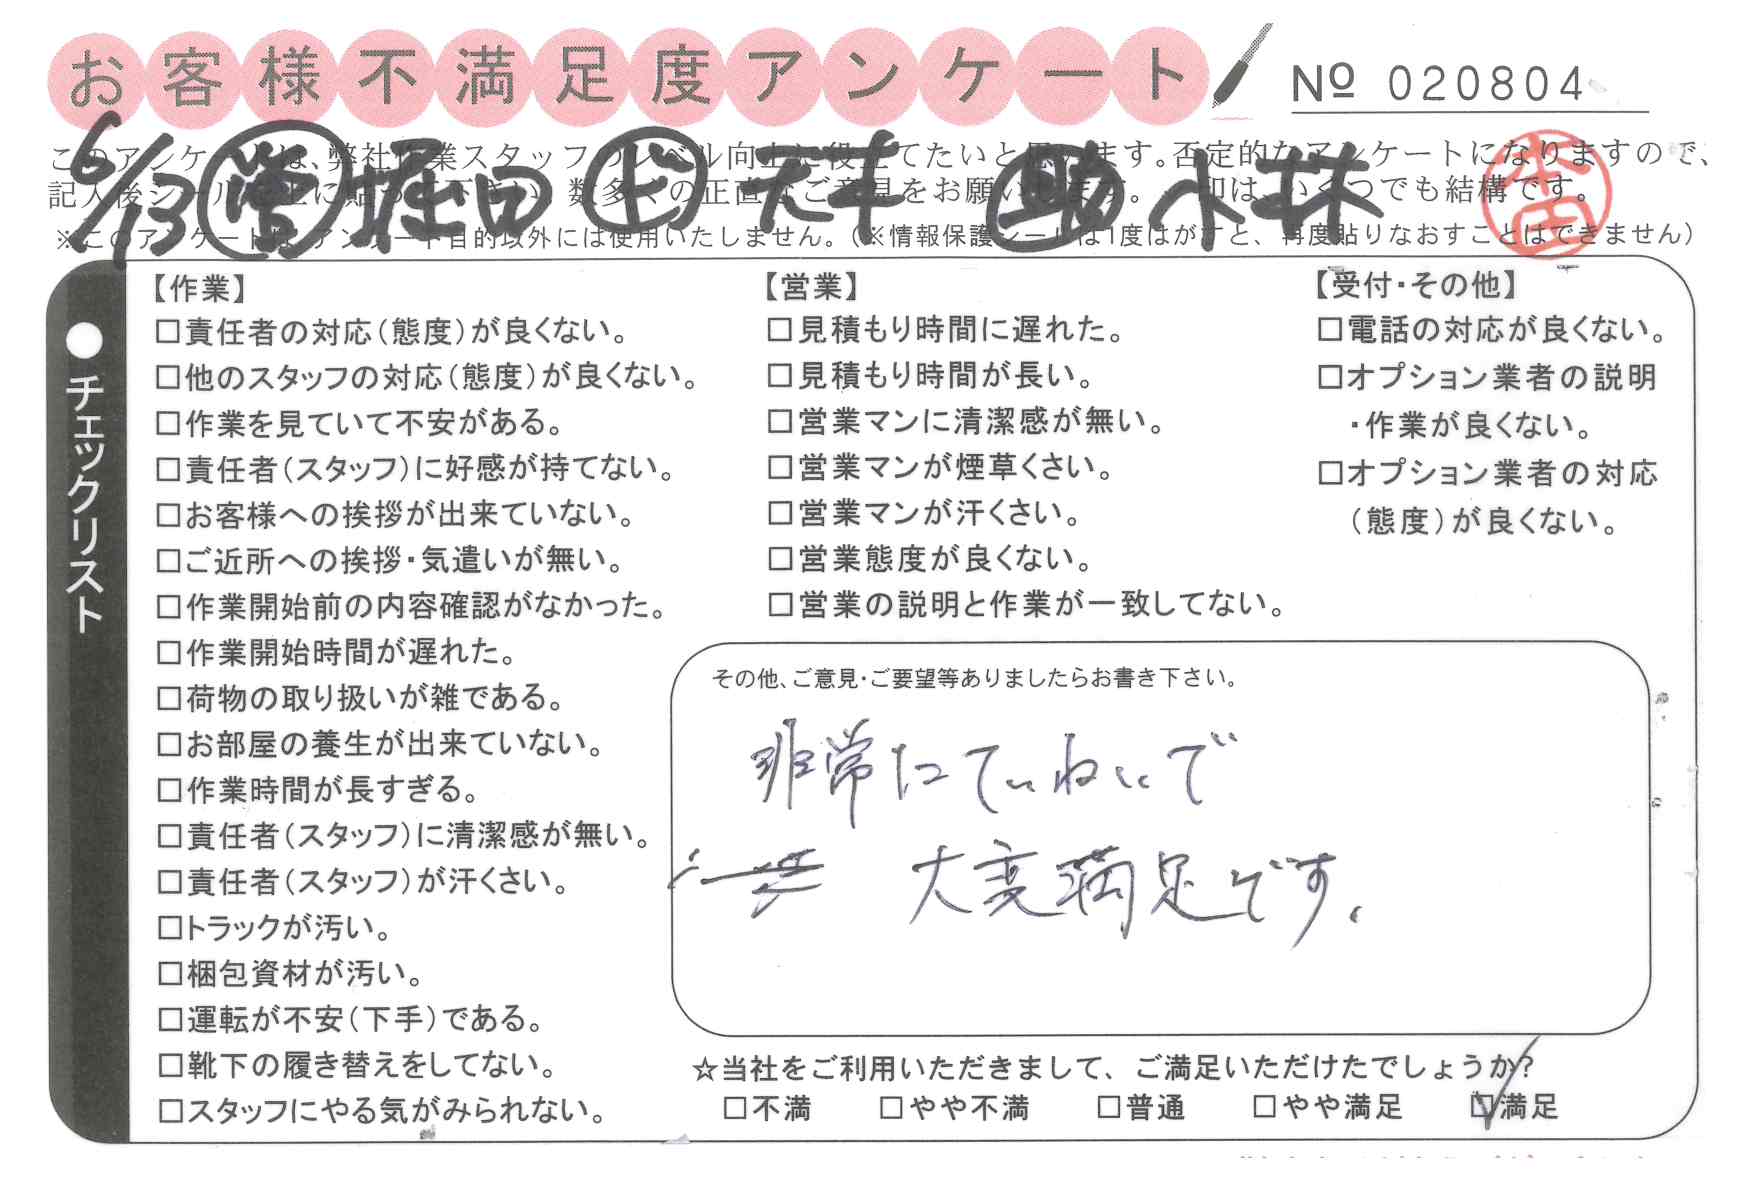 お客様不満足度アンケート
Nº 020804
6/13 営 堀口 上 天幸 助 小林
本田
このアンケートは、弊社作業スタッフのレベル向上に役立てたいと思います。否定的なアンケートになりますので、
記入後シールを上に貼って下さい。数多くの正直なご意見をお願いします。 印は、いくつでも結構です。
※このアンケートは、アンケート目的以外には使用いたしません。(※情報保護シールは1度はがすと、再度貼りなおすことはできません)
●チェックリスト
【作業】
□責任者の対応(態度)が良くない。
□他のスタッフの対応(態度)が良くない。
□作業を見ていて不安がある。
□責任者(スタッフ)に好感が持てない。
□お客様への挨拶が出来ていない。
□ご近所への挨拶・気遣いが無い。
□作業開始前の内容確認がなかった。
□作業開始時間が遅れた。
□荷物の取り扱いが雑である。
□お部屋の養生が出来ていない。
□作業時間が長すぎる。
□責任者(スタッフ)に清潔感が無い。
□責任者(スタッフ)が汗くさい。
□トラックが汚い。
□梱包資材が汚い。
□運転が不安(下手)である。
□靴下の履き替えをしてない。
□スタッフにやる気がみられない。
【営業】
□見積もり時間に遅れた。
□見積もり時間が長い。
□営業マンに清潔感が無い。
□営業マンが煙草くさい。
□営業マンが汗くさい。
□営業態度が良くない。
□営業の説明と作業が一致してない。
【受付・その他】
□電話の対応が良くない。
□オプション業者の説明
・作業が良くない。
□オプション業者の対応
(態度)が良くない。
その他、ご意見・ご要望等ありましたらお書き下さい。
非常にていねいで
大変満足です。
☆当社をご利用いただきまして、ご満足いただけたでしょうか?
□不満 □やや不満 □普通 □やや満足 ☑満足